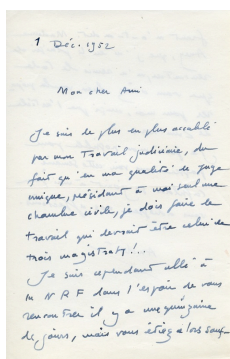 1 Déc. 1952
Mon cher Ami
Je suis de plus en plus accablé
par mon Travail judiciaire, du
fait qu'en ma qualité de juge
unique, présidant à moi seul une
chambre civile, je dois faire le
travail qui devrait être celui de
trois magistrats !..
Je suis cependant allé à
la NRF dans l'espoir de vous
rencontrer il y a une quinzaine
de jours, mais vous étiez alors souf-